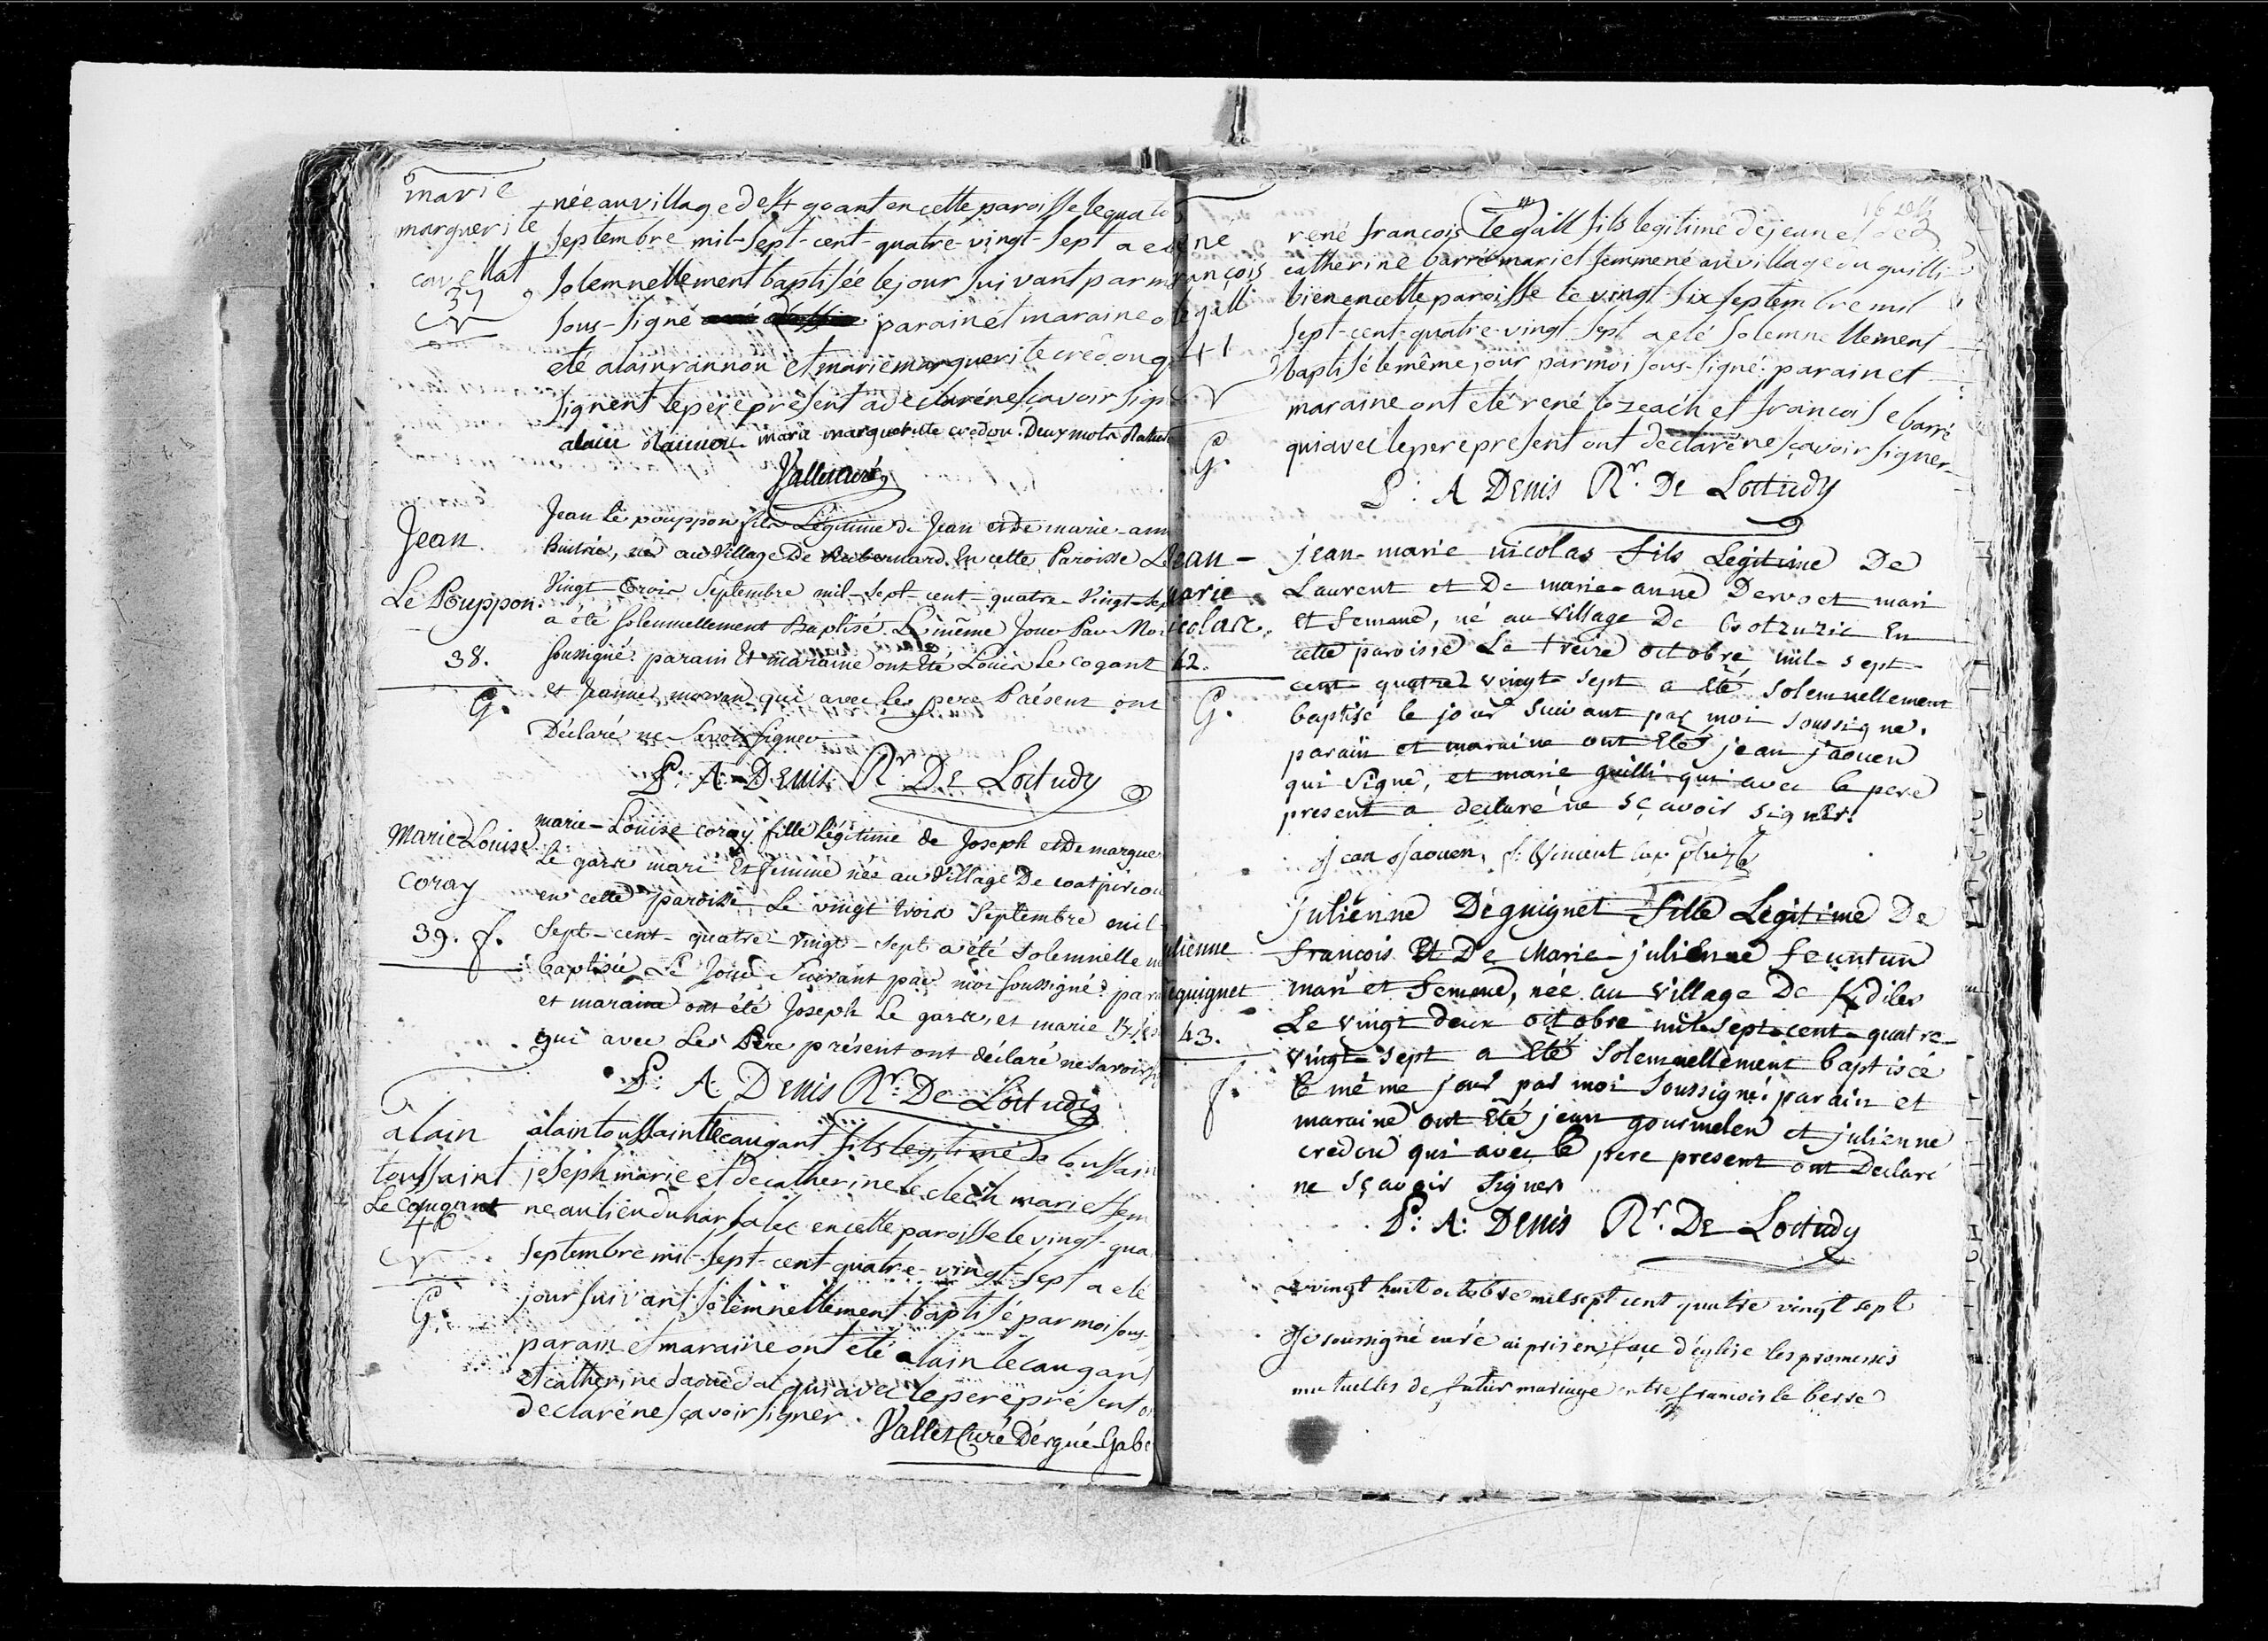 marie
marguerite
cavellat
37
née au village de Kgoant en cette paroisse le quato
septembre mil-sept-cent-quatre-vingt-sept a eté
solemnellement baptisée le jour suivant par m
sous-signé parain et maraine o
eté alain rannou et marie marguerite credou q
signent le pere present a declaré ne sçavoir sign
alain Rannou marie marguerite credou. Deux mots Ratur
Vallet curé
Jean
Le Pouppon.
38.
G.
Jean le pouppon fils Légitime de Jean et de marie-ann
né au Village De en cette Paroisse Le
Vingt Trois Septembre mil-sept-cent-quatre-Vingt-sep
a été solemnellement Baptisé Le même Jour Par Moi
soussigné. parain Et maraine ont été Louis Le cogant
et Jeanne morvan qui avec les pere Présent ont
Déclaré ne Savoir signer
P: A: Denis Rr. De Loctudy
Marie-Louise
Coray
39. f.
marie-Louise coray fille légitime de Joseph et de margue
le garx mari Et femme née au Village De coatpircou
en cette paroisse Le vingt trois Septembre mil-
Sept-cent-quatre-Vingt-sept a été solemnelle m
baptisée Le Jour Suivant par moi soussigné: par
et maraine ont été Joseph Le garx, et marie
qui avec Le Père présent ont déclaré ne savoir
P: A: Denis Rr. De Loctudy
alain
toussaint
Le Caugant
40
G.
alain toussaint le caugant fils legitime de toussain
joseph marie et de catherine le cleach mari et fem
ne au lieu du en cette paroisse le vingt-qua
septembre mil-sept-cent-quatre-vingt-sept a eté
jour suivant solemnellement baptisé par moi sous-
parain et maraine ont eté alain le caugant
et catherine daouedal qui avec le pere présent o
declaré ne sçavoir signer.
Vallet Curé D'ergué-Gabe
rené
françois
le gall
41
G.
rené francois le gall fils legitime de jean et de
catherine barré mari et femme né au village du quilli
bien en cette paroisse le vingt-six septembre mil
sept-cent-quatre-vingt-sept a eté solemnellement
baptisé le même jour par moi sous-signé: parain et
maraine ont eté rené le zeach et francoise barré
qui avec le pere present ont declaré ne sçavoir signer
P: A Denis Rr. De Loctudy
Jean-
marie
nicolas.
42.
G.
jean-marie nicolas fils Legitime De
Laurent et De marie-anne Dervoet mari
et femme, né au village De en
cette paroisse Le treize octobre mil-sept-
cent quatre vingt sept a Eté Solemnellement
baptisé le jour suivant par moi soussigné.
parain et maraine ont Eté jean jaouen
qui signe, et marie quilli qui avec le pere
present a declaré ne sçavoir signer.
jean jaouen,
ulienne
eguignet
43.
f.
julienne Déguignet fille Légitime De
francois Et De Marie-julienne feuntun
mari et femme, née au village De Kdiles
Le vingt deux octobre mil-sept-cent-quatre-
vingt-sept a Eté Solemnellement baptisée
le même jour par moi soussigné. parain et
maraine ont Eté jean gourmelen et julienne
credou qui avec le pere present ont Declaré
ne sçavoir signer
P: A: Denis Rr. De Loctudy
Le vingt huit octobre mil sept cent quatre vingt sept
Je soussigné curé ai pris en face d'église les promesses
mutuelles de futur mariage entre francois le berre